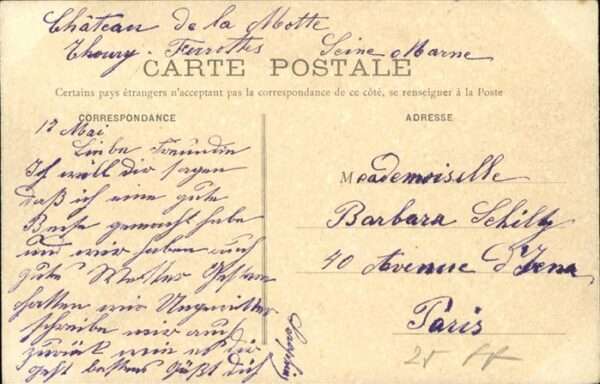 Château de la Motte
Thoury-Ferrottes Seine Marne
CARTE POSTALE
Certains pays étrangers n'acceptant pas la correspondance de ce côté, se renseigner à la Poste
CORRESPONDANCE
ADRESSE
12 Mai
Liebe Freundin
Ich will dir sagen
daß ich eine gute
gemacht habe
und wir haben auch
gute Wetter Gestern
hatten wir Ungewitter
schreibe mir auch
zurück wie es dir
geht bestens Grüßt dich
Mademoiselle
Barbara Schilty
40 Avenue d'Jena
Paris
25